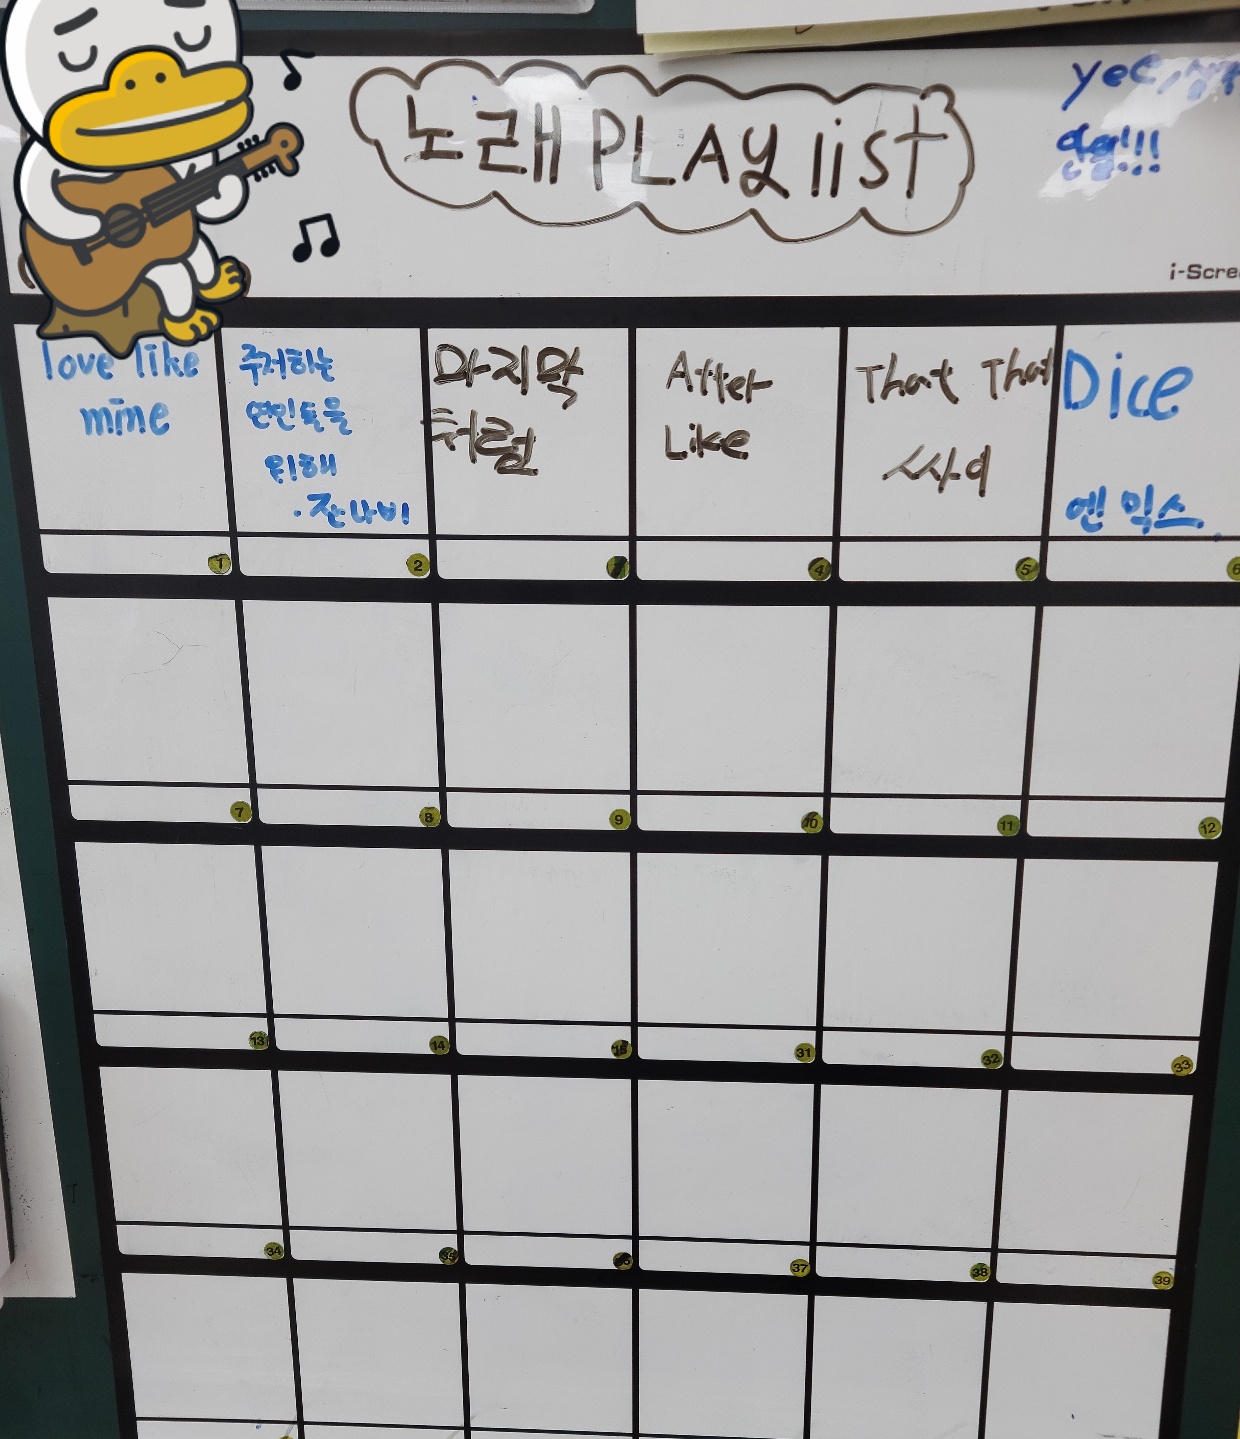 노래 PLAY list
yec, 
i-Scre
love like
mine
주저하는
연인들을
위해
. 잔나비
마지막
처럼
After
Like
That That
싸이
Dice
엔믹스
1
2
4
5
6
7
8
9
10
11
12
13
14
15
31
32
33
34
35
36
37
38
39